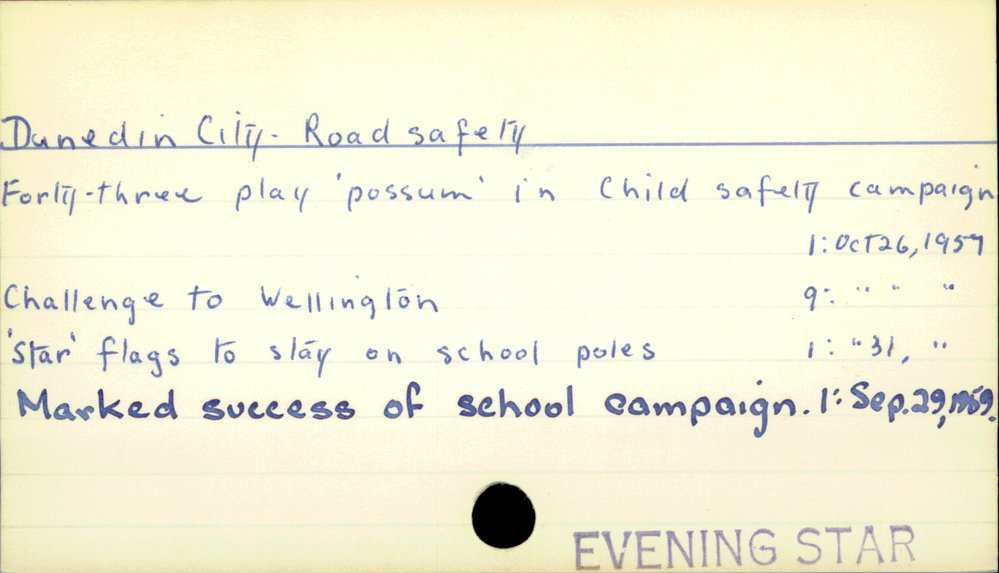 Dunedin City - Road safety
Forty-three play 'possum' in Child safety campaign
1: Oct 26, 1957
Challenge to Wellington 9: " " "
'Star' flags to stay on school poles 1: " 31, "
Marked success of school campaign. 1: Sep. 29, 1959.
EVENING STAR